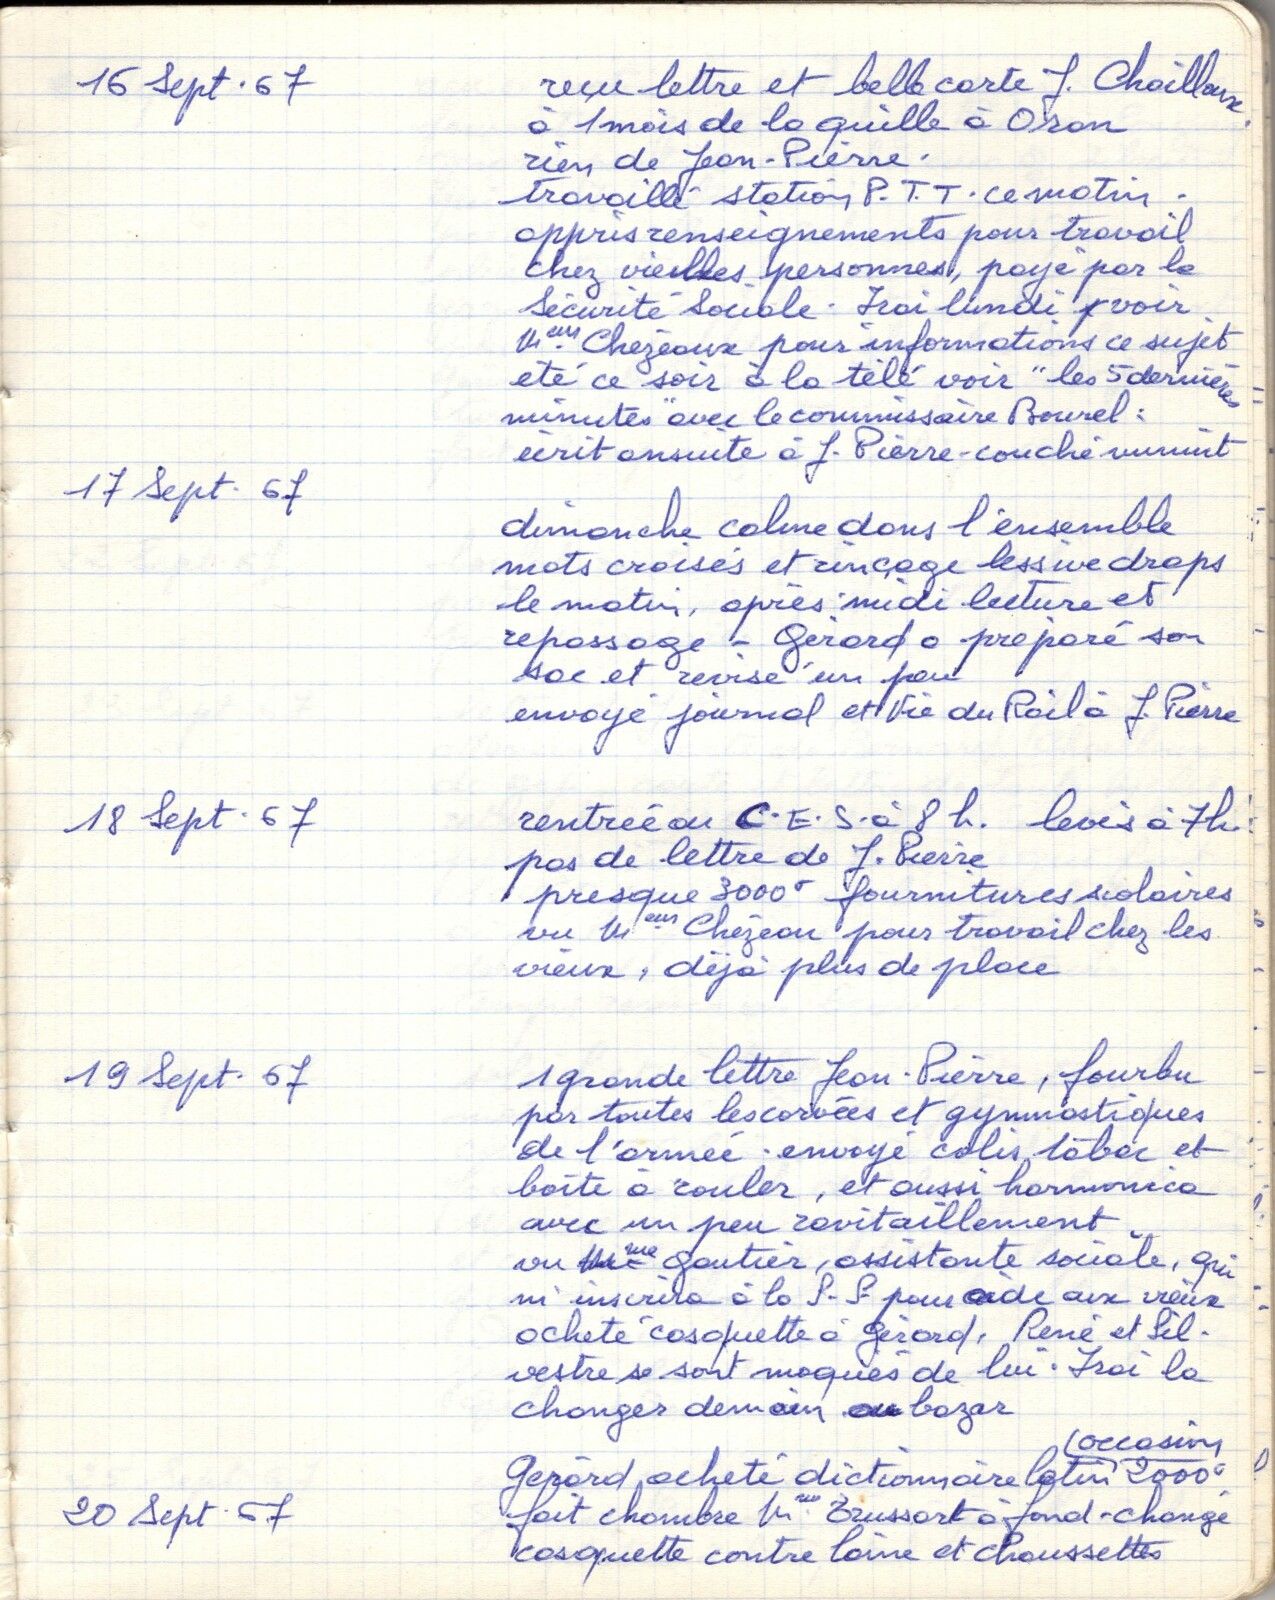 16 Sept. 67
reçu lettre et belle carte J. Chailloux
à 1 mois de la quille à Oran
rien de Jean-Pierre.
travaillé station P.T.T. ce matin.
appris renseignements pour travail
chez vieilles personnes, payé par la
Sécurité Sociale. Irai lundi voir
Meur Chézeaux pour informations ce sujet
été ce soir à la télé voir "les 5 dernières
minutes" avec le commissaire Bourel :
écrit ensuite à J. Pierre - couché minuit
17 Sept. 67
dimanche calme dans l'ensemble
mots croisés et rinçage lessive draps
le matin, après-midi lecture et
repassage - Gérard a préparé son
sac et révisé un peu
envoyé journal et Vie du Rail à J. Pierre
18 Sept. 67
rentrée au C.E.S. à 8 h. levés à 7h
pas de lettre de J. Pierre
presque 3000 fournitures scolaires
vu Meur Chézeau pour travail chez les
vieux, déjà plus de place
19 Sept. 67
1 grande lettre Jean-Pierre, fourbu
par toutes les corvées et gymnastiques
de l'armée. envoyé colis tabac et
boîte à rouler, et aussi harmonica
avec un peu ravitaillement.
vu Mme Gautier, assistante sociale, qui
m'inscrira à la S.S. pour aide aux vieux
acheté casquette à Gérard, René et Sil-
vestre se sont moqués de lui. Irai la
changer demain au bazar
(occasion
Gérard acheté dictionnaire latin 2000
20 Sept. 67
fait chambre Trussart à fond - changé
casquette contre laine et chaussettes